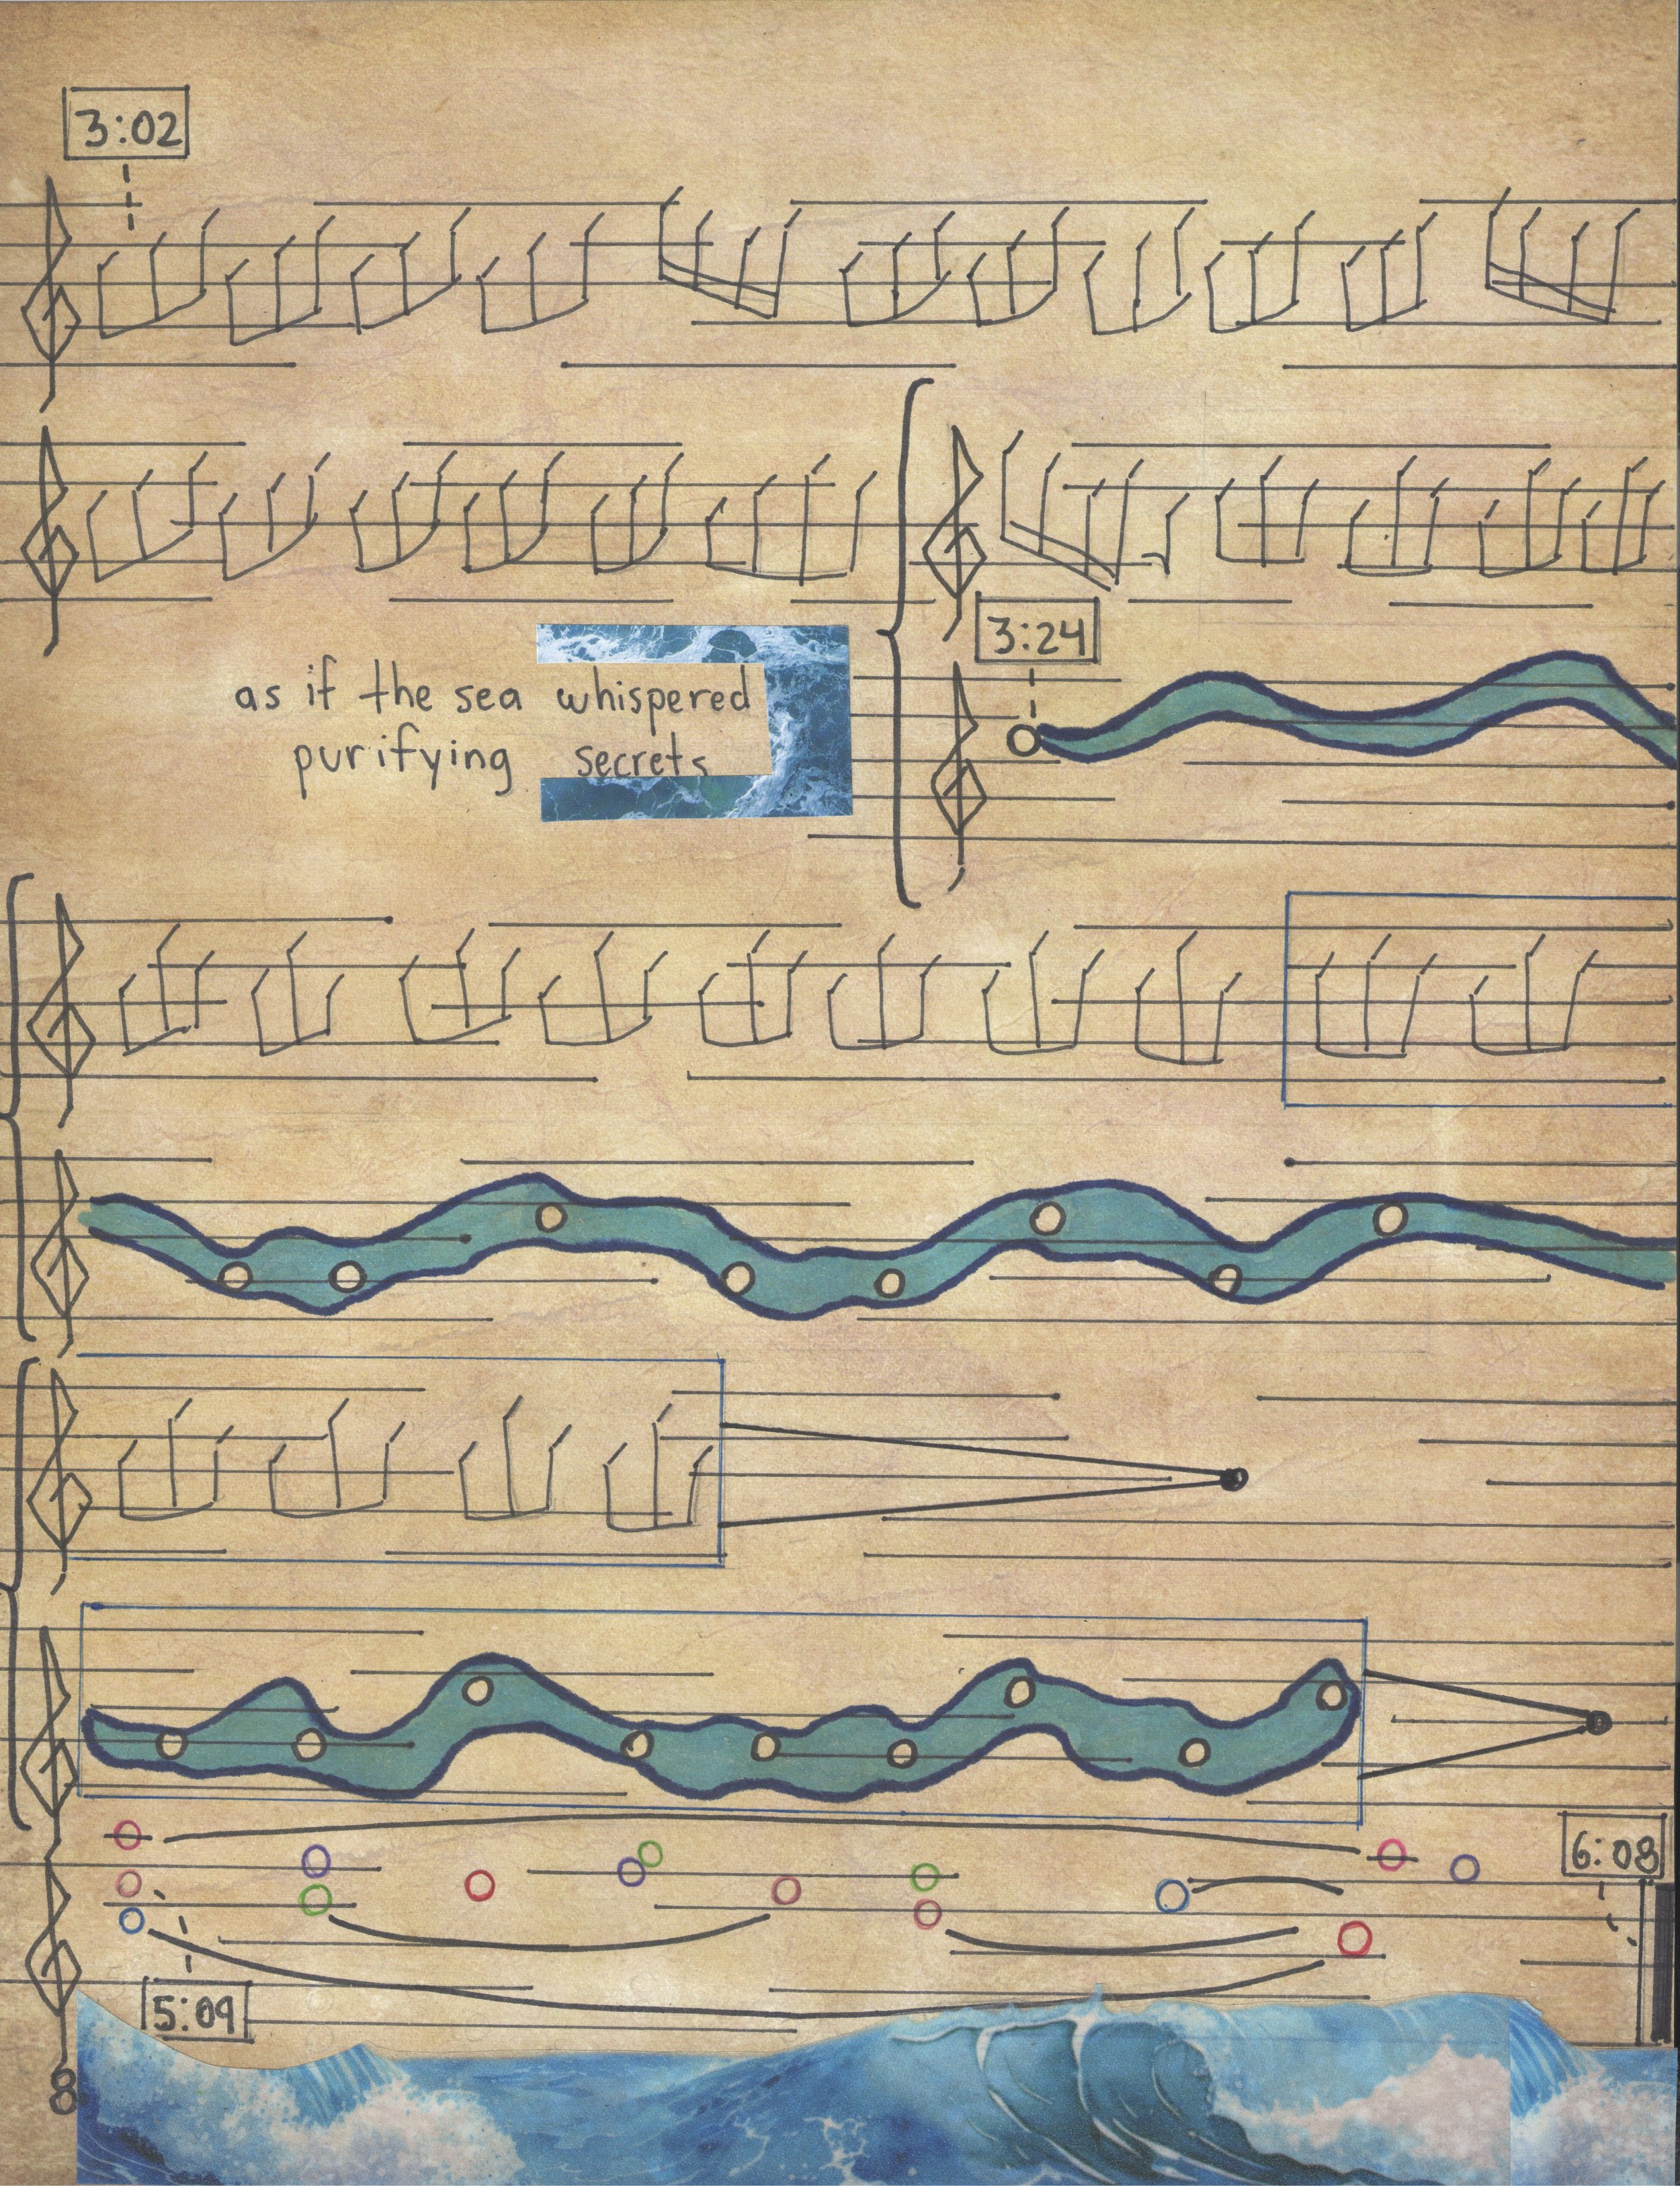 3:02
3:24
as if the sea whispered
purifying secrets
6:08
5:09
8